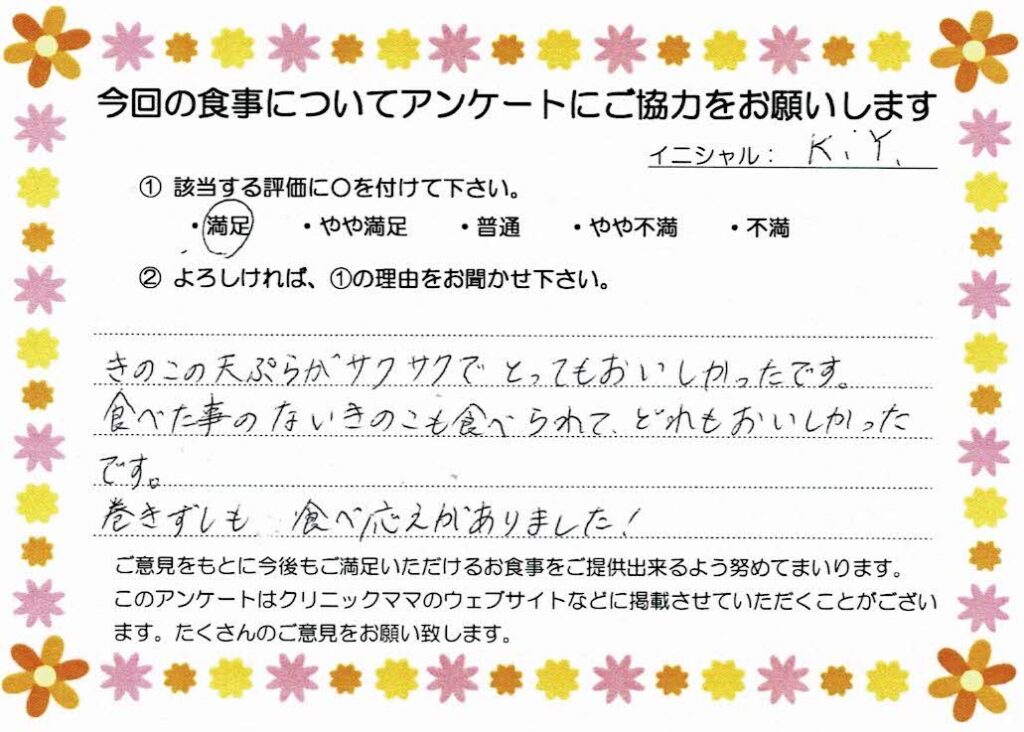 今回の食事についてアンケートにご協力をお願いします
イニシャル： K.Y.
① 該当する評価に〇を付けて下さい。
・満足 ・やや満足 ・普通 ・やや不満 ・不満
② よろしければ、①の理由をお聞かせ下さい。
きのこの天ぷらがサクサクで とってもおいしかったです。
食べた事のないきのこも食べられて、どれもおいしかった
です。
巻きずしも、食べ応えがありました！
ご意見をもとに今後もご満足いただけるお食事をご提供出来るよう努めてまいります。
このアンケートはクリニックママのウェブサイトなどに掲載させていただくことがござい
ます。たくさんのご意見をお願い致します。